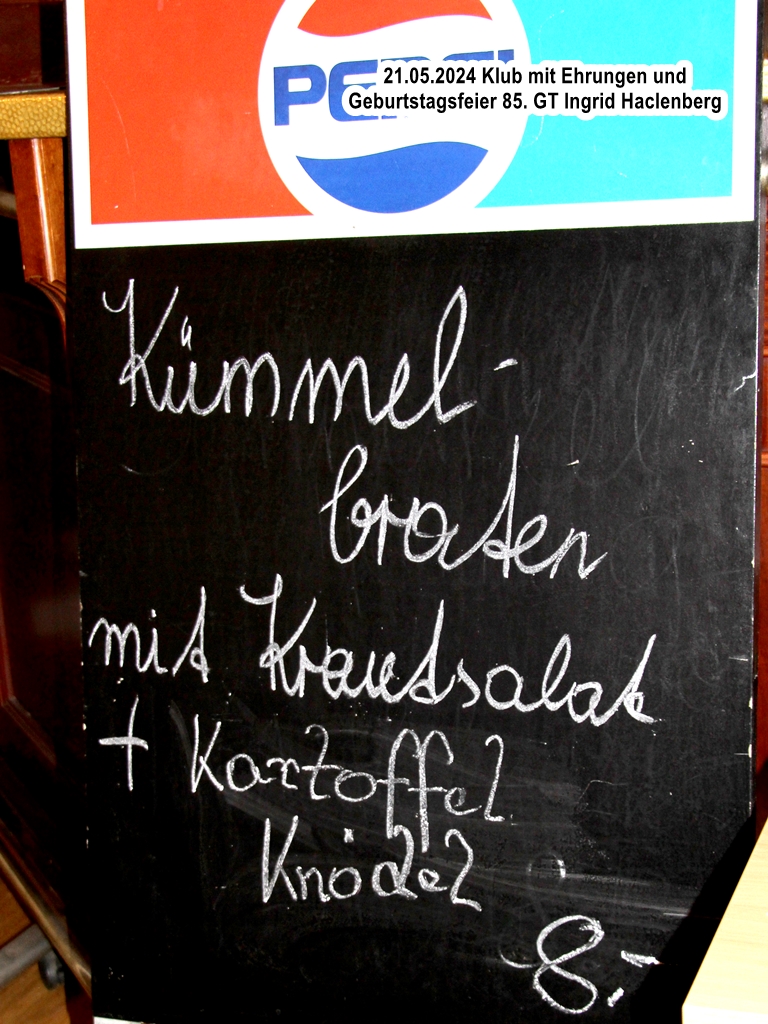 PEPSI
21.05.2024 Klub mit Ehrungen und
Geburtstagsfeier 85. GT Ingrid Haclenberg
Kümmel-
braten
mit Krautsalat
+ Kartoffel
Knödel
8,-